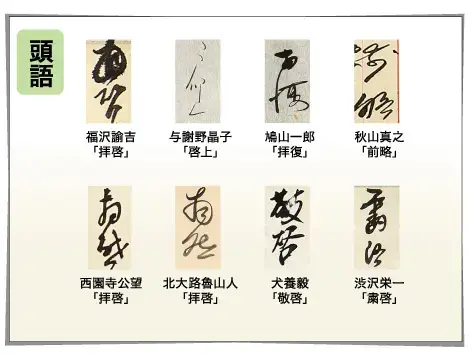 頭語
福沢諭吉
「拝啓」
与謝野晶子
「啓上」
鳩山一郎
「拝復」
秋山真之
「前略」
西園寺公望
「拝啓」
北大路魯山人
「拝啓」
犬養毅
「敬啓」
渋沢栄一
「粛啓」